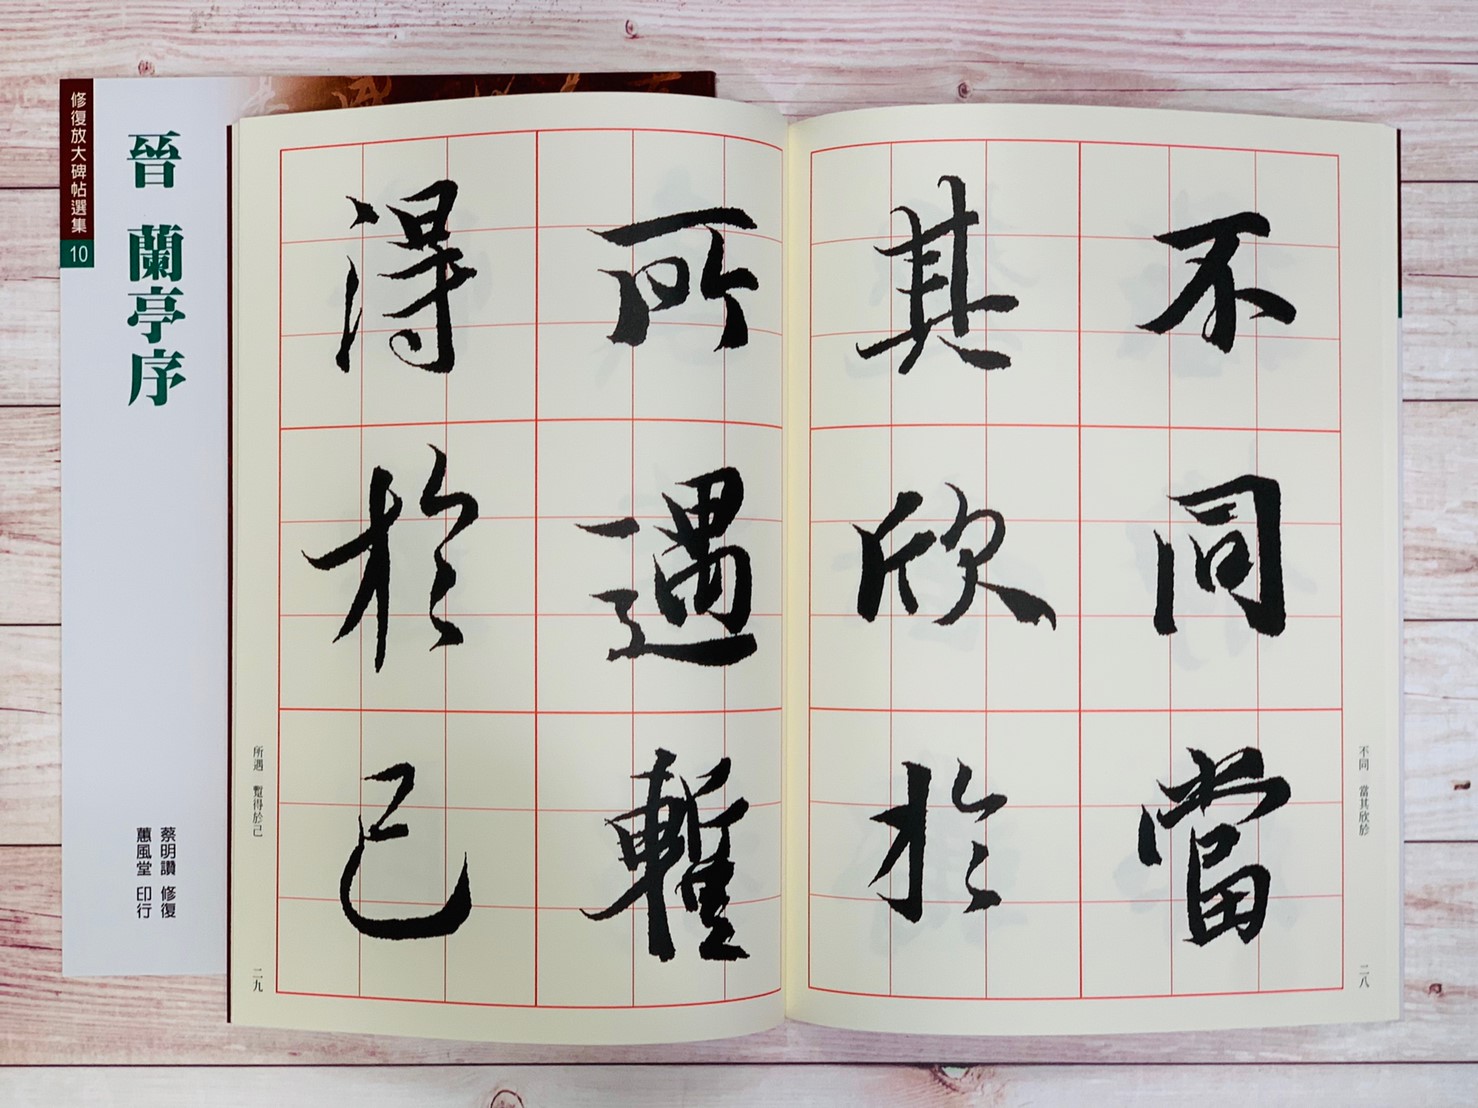 修復放大碑帖選集
10
晉 蘭亭序
蔡明讚 修復
蕙風堂 印行
不同當
其欣於
所遇蹔
得於己
不同 當其欣於
二八
所遇 蹔得於己
二九